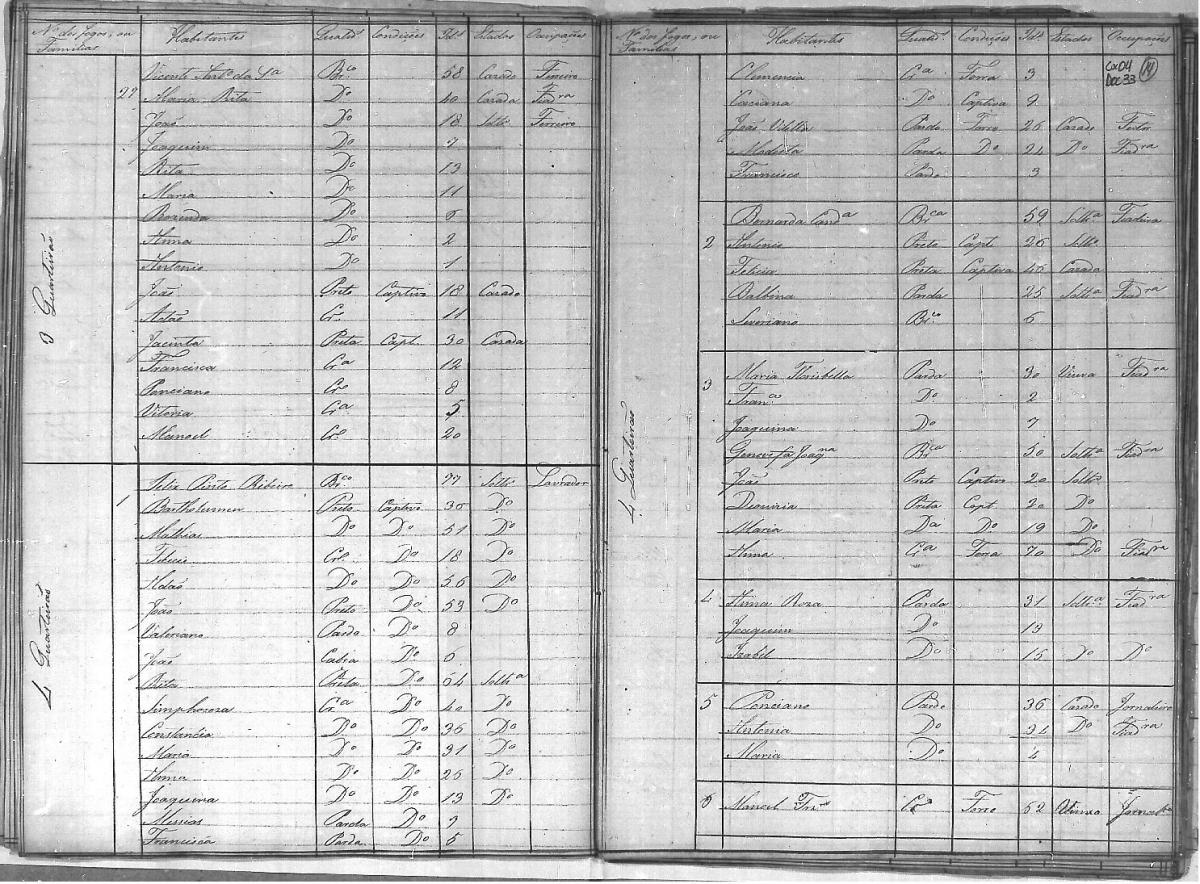 Nº dos Fogos, ou Familias Habitantes Qualids Condições Ids Estados Ocupações
Vicente Antº da Sª Brco 58 Casado Ferreiro
27 Maria Rita Dº 40 Casada Fiadra
João Dº 18 Soltº Ferreiro
Joaquim Dº 7
Rita Dº 13
Maria Dº 11
Rozenda Dº
Anna Dº 2
Antonio Dº 1
João Preto Captivo 18 Casado
Adão Crº 11
Jacinta Preta Capt. 30 Casada
Francisca Crª 12
Ponciano Crº 8
Vitoria Crª 5
Manoel Crº 20
3 Quarteirão
Felix Pinto Ribeiro Brco 77 Soltº Lavrador
1 Bartholumeu Preto Captivo 30 Dº
Mathias Dº Dº 51 Dº
Crº Dº 18 Dº
Adão Dº Dº 56 Dº
João Preto Dº 53 Dº
Valeriano Pardo Dº 8
João Cabra Dº 6
Rita Preta Dº 64 Soltª
Simphoroza Crª Dº 40 Dº
Constancia Dº Dº 36 Dº
Maria Dº Dº 31 Dº
Anna Dº Dº 25 Dº
Joaquina Dº Dº 13 Dº
Messias Parda Dº
Francisca Parda Dº 5
4 Quarteirão
Nº dos Fogos, ou Familias Habitantes Qualids Condições Ids Estados Ocupações
Cx04
Doc33
14
Clemencia Crª Forra 3
Dº Captiva
João Pardo Forro 26 Casado
Modesta Parda Dº 24 Dº Fiadra
Francisco Pardo 3
Bernarda Candª Brca 59 Soltª Fiadeira
2 Antonio Preto Capt. 26 Soltº
Felicia Preta Captiva 46 Casada
Balbina Parda 25 Soltª Fiadra
Severiano Brco 6
3 Maria Florisbella Parda 30 Viuva Fiadra
Franca Dº 2
Joaquina Dº 7
Genovefa Joaqna Brca 50 Soltª Fiadra
João Preto Captivo 20 Soltº
Preta Capt 20 Dº
Maria Dª Dº 19 Dº
Anna Crª Forra 70 Dº Fiadra
4 Anna Roza Parda 31 Soltª Fiadra
Joaquim Dº 13
Izabel Dº 15 Dº Dº
5 Ponciano Pardo 36 Casado Jornaleiro
Antonia Dº 34 Dº Fiadra
Maria Dº 4
6 Manoel Crº Forro 62 Viuvo
4 Quarteirão